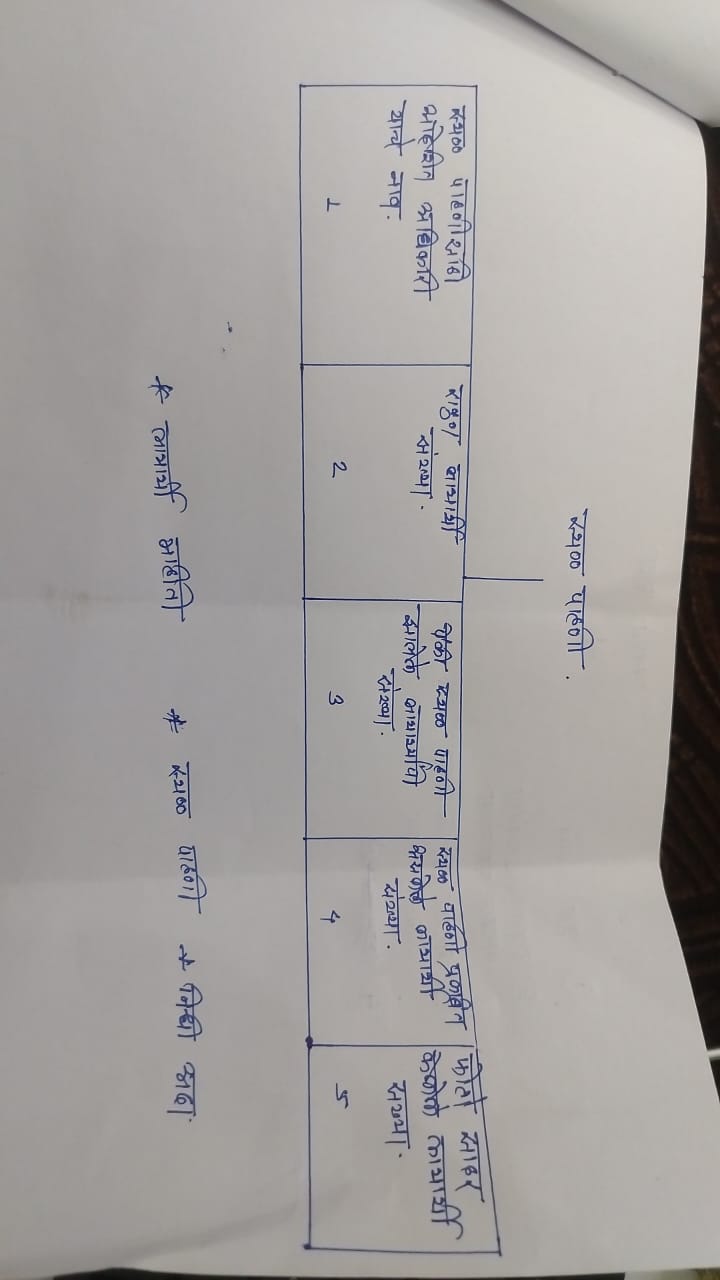 स्थळ पाहणी.
स्थळ पाहणीसाठी
आदेशित अधिकारी
यांचे नाव.
1
एकुण लाभार्थी
संख्या.
2
पैकी स्थळ पाहणी
झालेले लाभार्थ्यांची
संख्या.
3
स्थळ पाहणी प्रलंबित
असलेले लाभार्थी
संख्या.
4
फोटो सादर
केलेले लाभार्थी
संख्या.
5
* लाभार्थी माहिती * स्थळ पाहणी * निधी अदा.